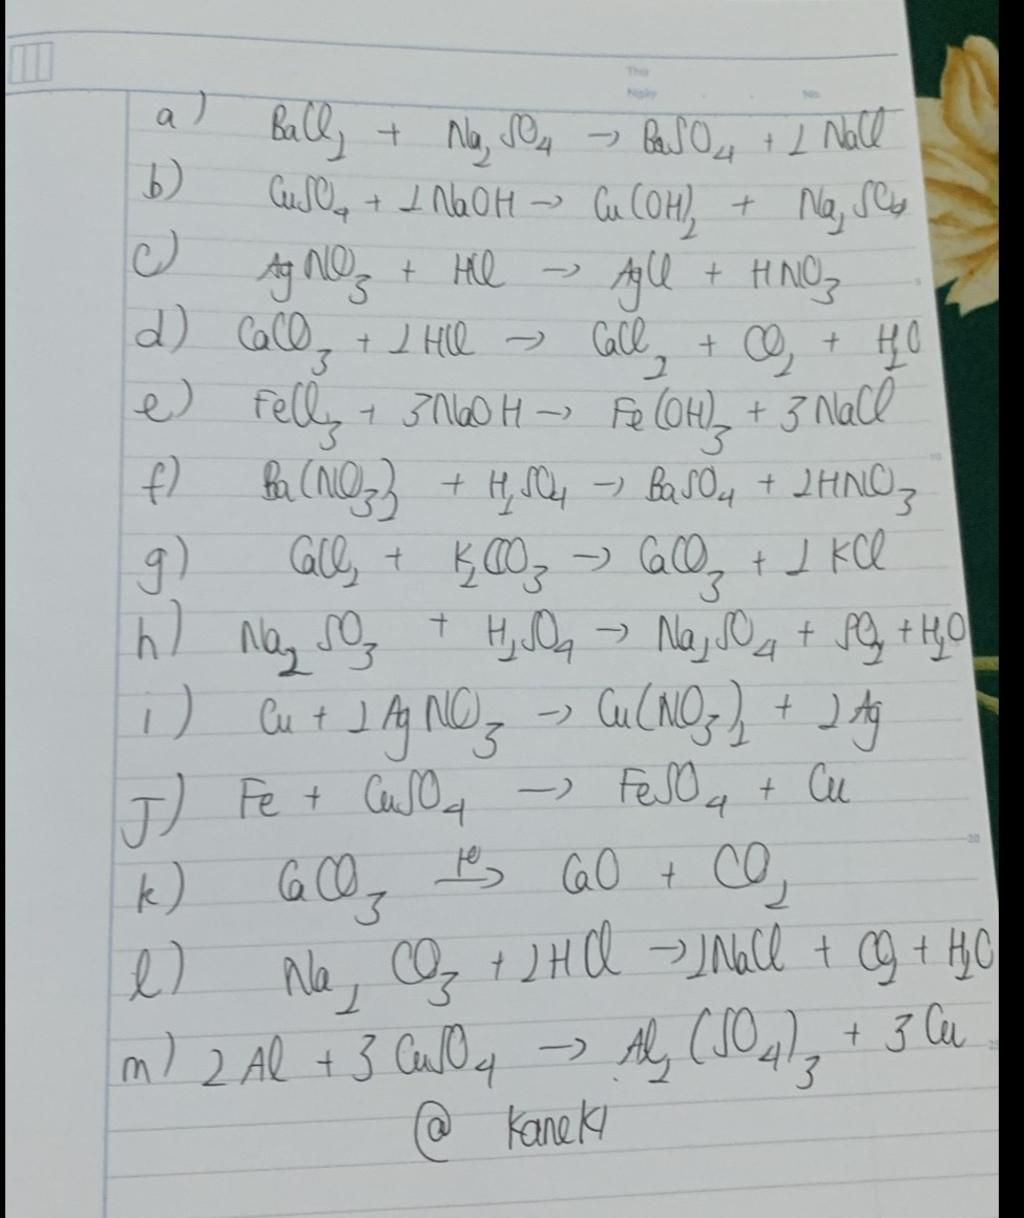 Thứ
Ngày . . No.
a) BaCl₂ + Na₂SO₄ → BaSO₄ + 2 NaCl
b) CuSO₄ + 2NaOH → Cu(OH)₂ + Na₂SO₄
c) AgNO₃ + HCl → AgCl + HNO₃
d) CaCO₃ + 2HCl → CaCl₂ + CO₂ + H₂O
e) FeCl₃ + 3NaOH → Fe(OH)₃ + 3NaCl
f) Ba(NO₃)₂ + H₂SO₄ → BaSO₄ + 2HNO₃
g) CaCl₂ + K₂CO₃ → CaCO₃ + 2KCl
h) Na₂SO₃ + H₂SO₄ → Na₂SO₄ + SO₂ + H₂O
i) Cu + 2AgNO₃ → Cu(NO₃)₂ + 2Ag
J) Fe + CuSO₄ → FeSO₄ + Cu
k) CaCO₃ → CaO + CO₂
l) Na₂CO₃ + 2HCl → 2NaCl + CO₂ + H₂O
m) 2Al + 3CuSO₄ → Al₂(SO₄)₃ + 3Cu
@ Kaneki